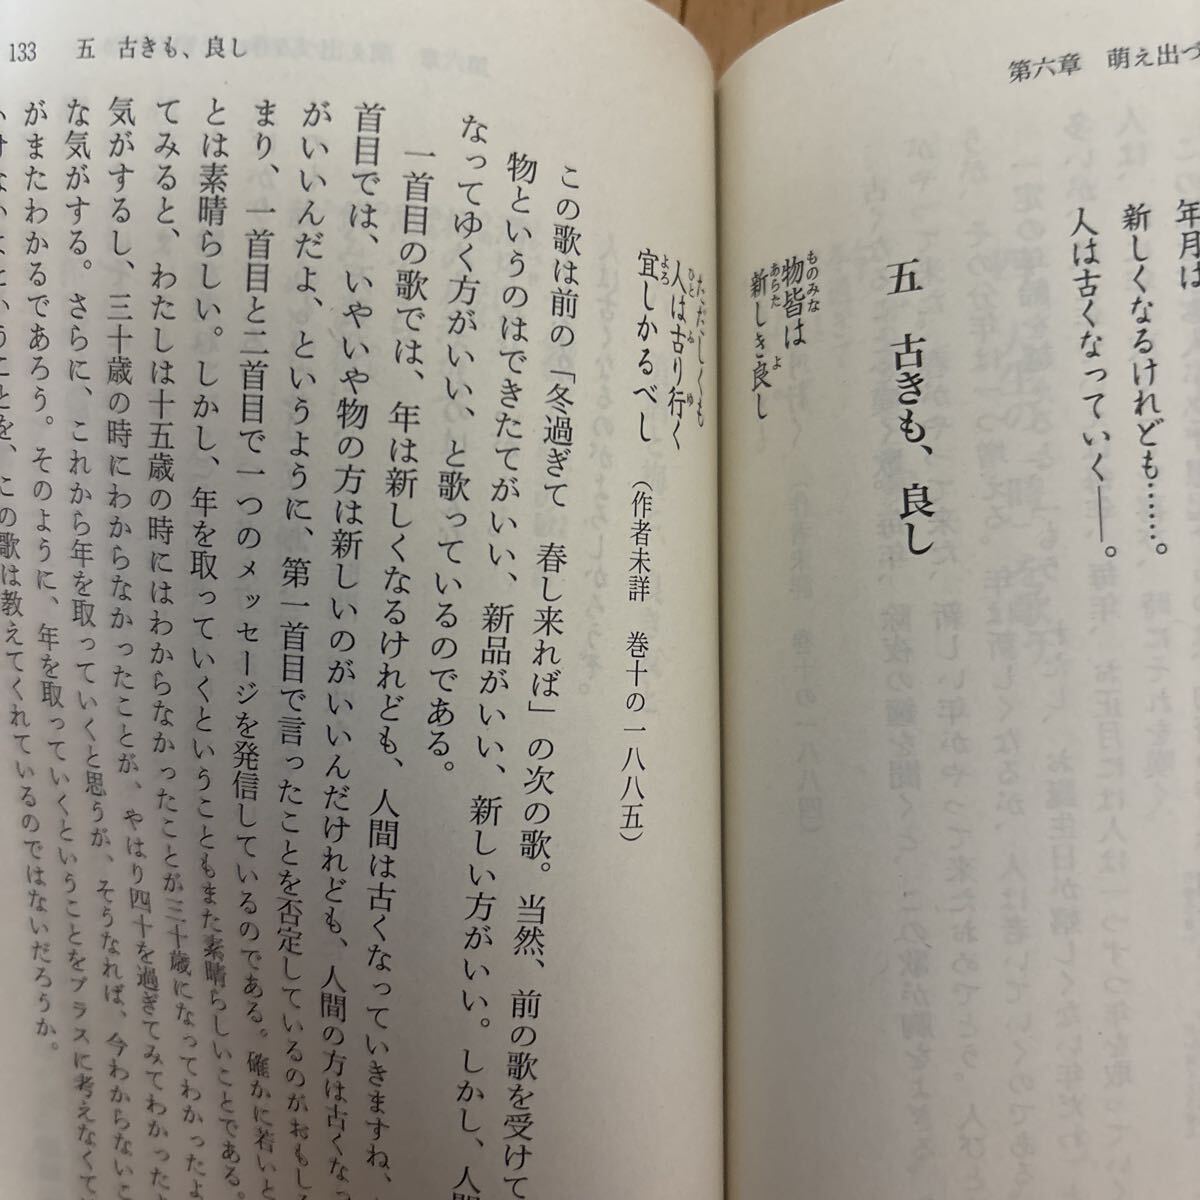 第六章 萌え出づ
年月は
新しくなるけれども……。
人は古くなっていく――。
五 古きも、良し
物皆は
ものみな
新しき良し
あらた よ
ただしくも
人は古り行く
ひと ふ ゆ
宜しかるべし (作者未詳 巻十の一八八五)
よろ
133 五 古きも、良し
この歌は前の「冬過ぎて 春し来れば」の次の歌。当然、前の歌を受けて
物というのはできたてがいい、新品がいい、新しい方がいい。しかし、人
なってゆく方がいい、と歌っているのである。
一首目の歌では、年は新しくなるけれども、人間は古くなっていきますね、
首目では、いやいや物の方は新しいのがいいんだけれども、人間の方は古くな
がいいんだよ、というように、第一首目で言ったことを否定しているのがおもし
まり、一首目と二首目で一つのメッセージを発信しているのである。確かに若いと
とは素晴らしい。しかし、年を取っていくということもまた素晴らしいことである。
てみると、わたしは十五歳の時にはわからなかったことが三十歳になってわかったよ
気がするし、三十歳の時にわからなかったことが、やはり四十を過ぎてみてわかった
な気がする。さらに、これから年を取っていくと思うが、そうなれば、今わからないこ
がまたわかるであろう。そのように、年を取っていくということをプラスに考えなくて
いけないということを、この歌は教えてくれているのではないだろうか。